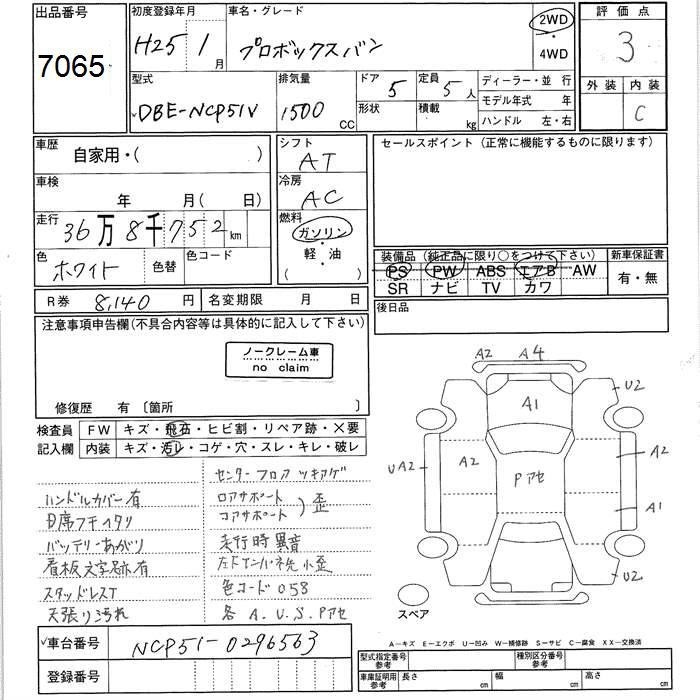 出品番号 7065
初度登録年月 H25 1 月
車名・グレード プロボックスバン
2WD
4WD
評価点 3
外装 内装 C
型式 DBE-NCP51V
排気量 1500 CC
ドア 5 定員 5 人
形状 積載 kg
ディーラー・並行
モデル年式 年
ハンドル 左・右
車歴 自家用・( )
車検 年 月( 日)
走行 36万8千752 km
色 ホワイト 色替 色コード
シフト AT
冷房 AC
燃料 ガソリン
軽・油
セールスポイント (正常に機能するものに限ります)
装備品 (純正品に限り○をつけて下さい) 新車保証書
PS PW ABS エアB AW 有・無
SR ナビ TV カワ
後日品
R券 8,140 円 名変期限 月 日
注意事項申告欄(不具合内容等は具体的に記入して下さい)
ノークレーム車
no claim
修復歴 有 〔箇所 〕
検査員 FW キズ・飛石・ヒビ割・リペア跡・X要
記入欄 内装 キズ・汚レ・コゲ・穴・スレ・キレ・破レ
センターフロア ツキアゲ
ハンドルカバー有 ロアサポート 歪
コアサポート
バッテリーあがり 走行時異音
看板文字跡有
スタッドレスT 色コード058
天張り汚れ 各 A.U.S.Pアセ
A2 A4
U2
A1
UA2 A2 Pアセ A2
A1
U2
スペア
A-キズ E-エクボ U-凹み W-補修跡 S-サビ C-腐食 XX-交換済
車台番号 NCP51-0296563
登録番号
型式指定番号 参考 種別区分番号 参考
車庫証明用 参考 長さ cm 幅 cm 高さ cm